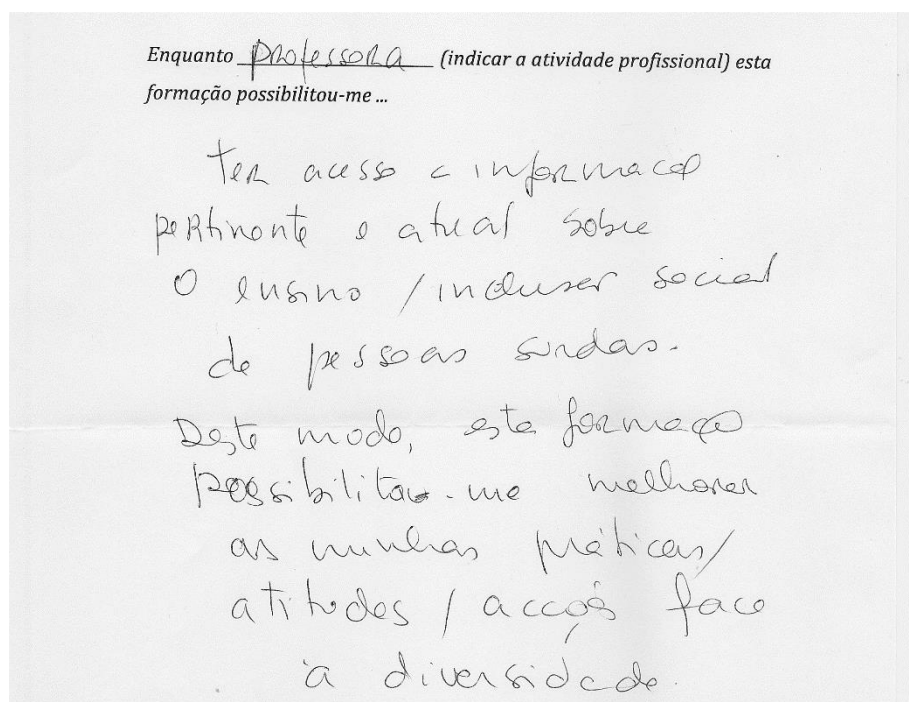 Enquanto professora (indicar a atividade profissional) esta
formação possibilitou-me ...
Ter acesso a informação
pertinente e atual sobre
o ensino / inclusão social
de pessoas surdas.
Deste modo, esta formação
possibilitou-me melhorar
as minhas práticas/
atitudes / acções face
à diversidade.